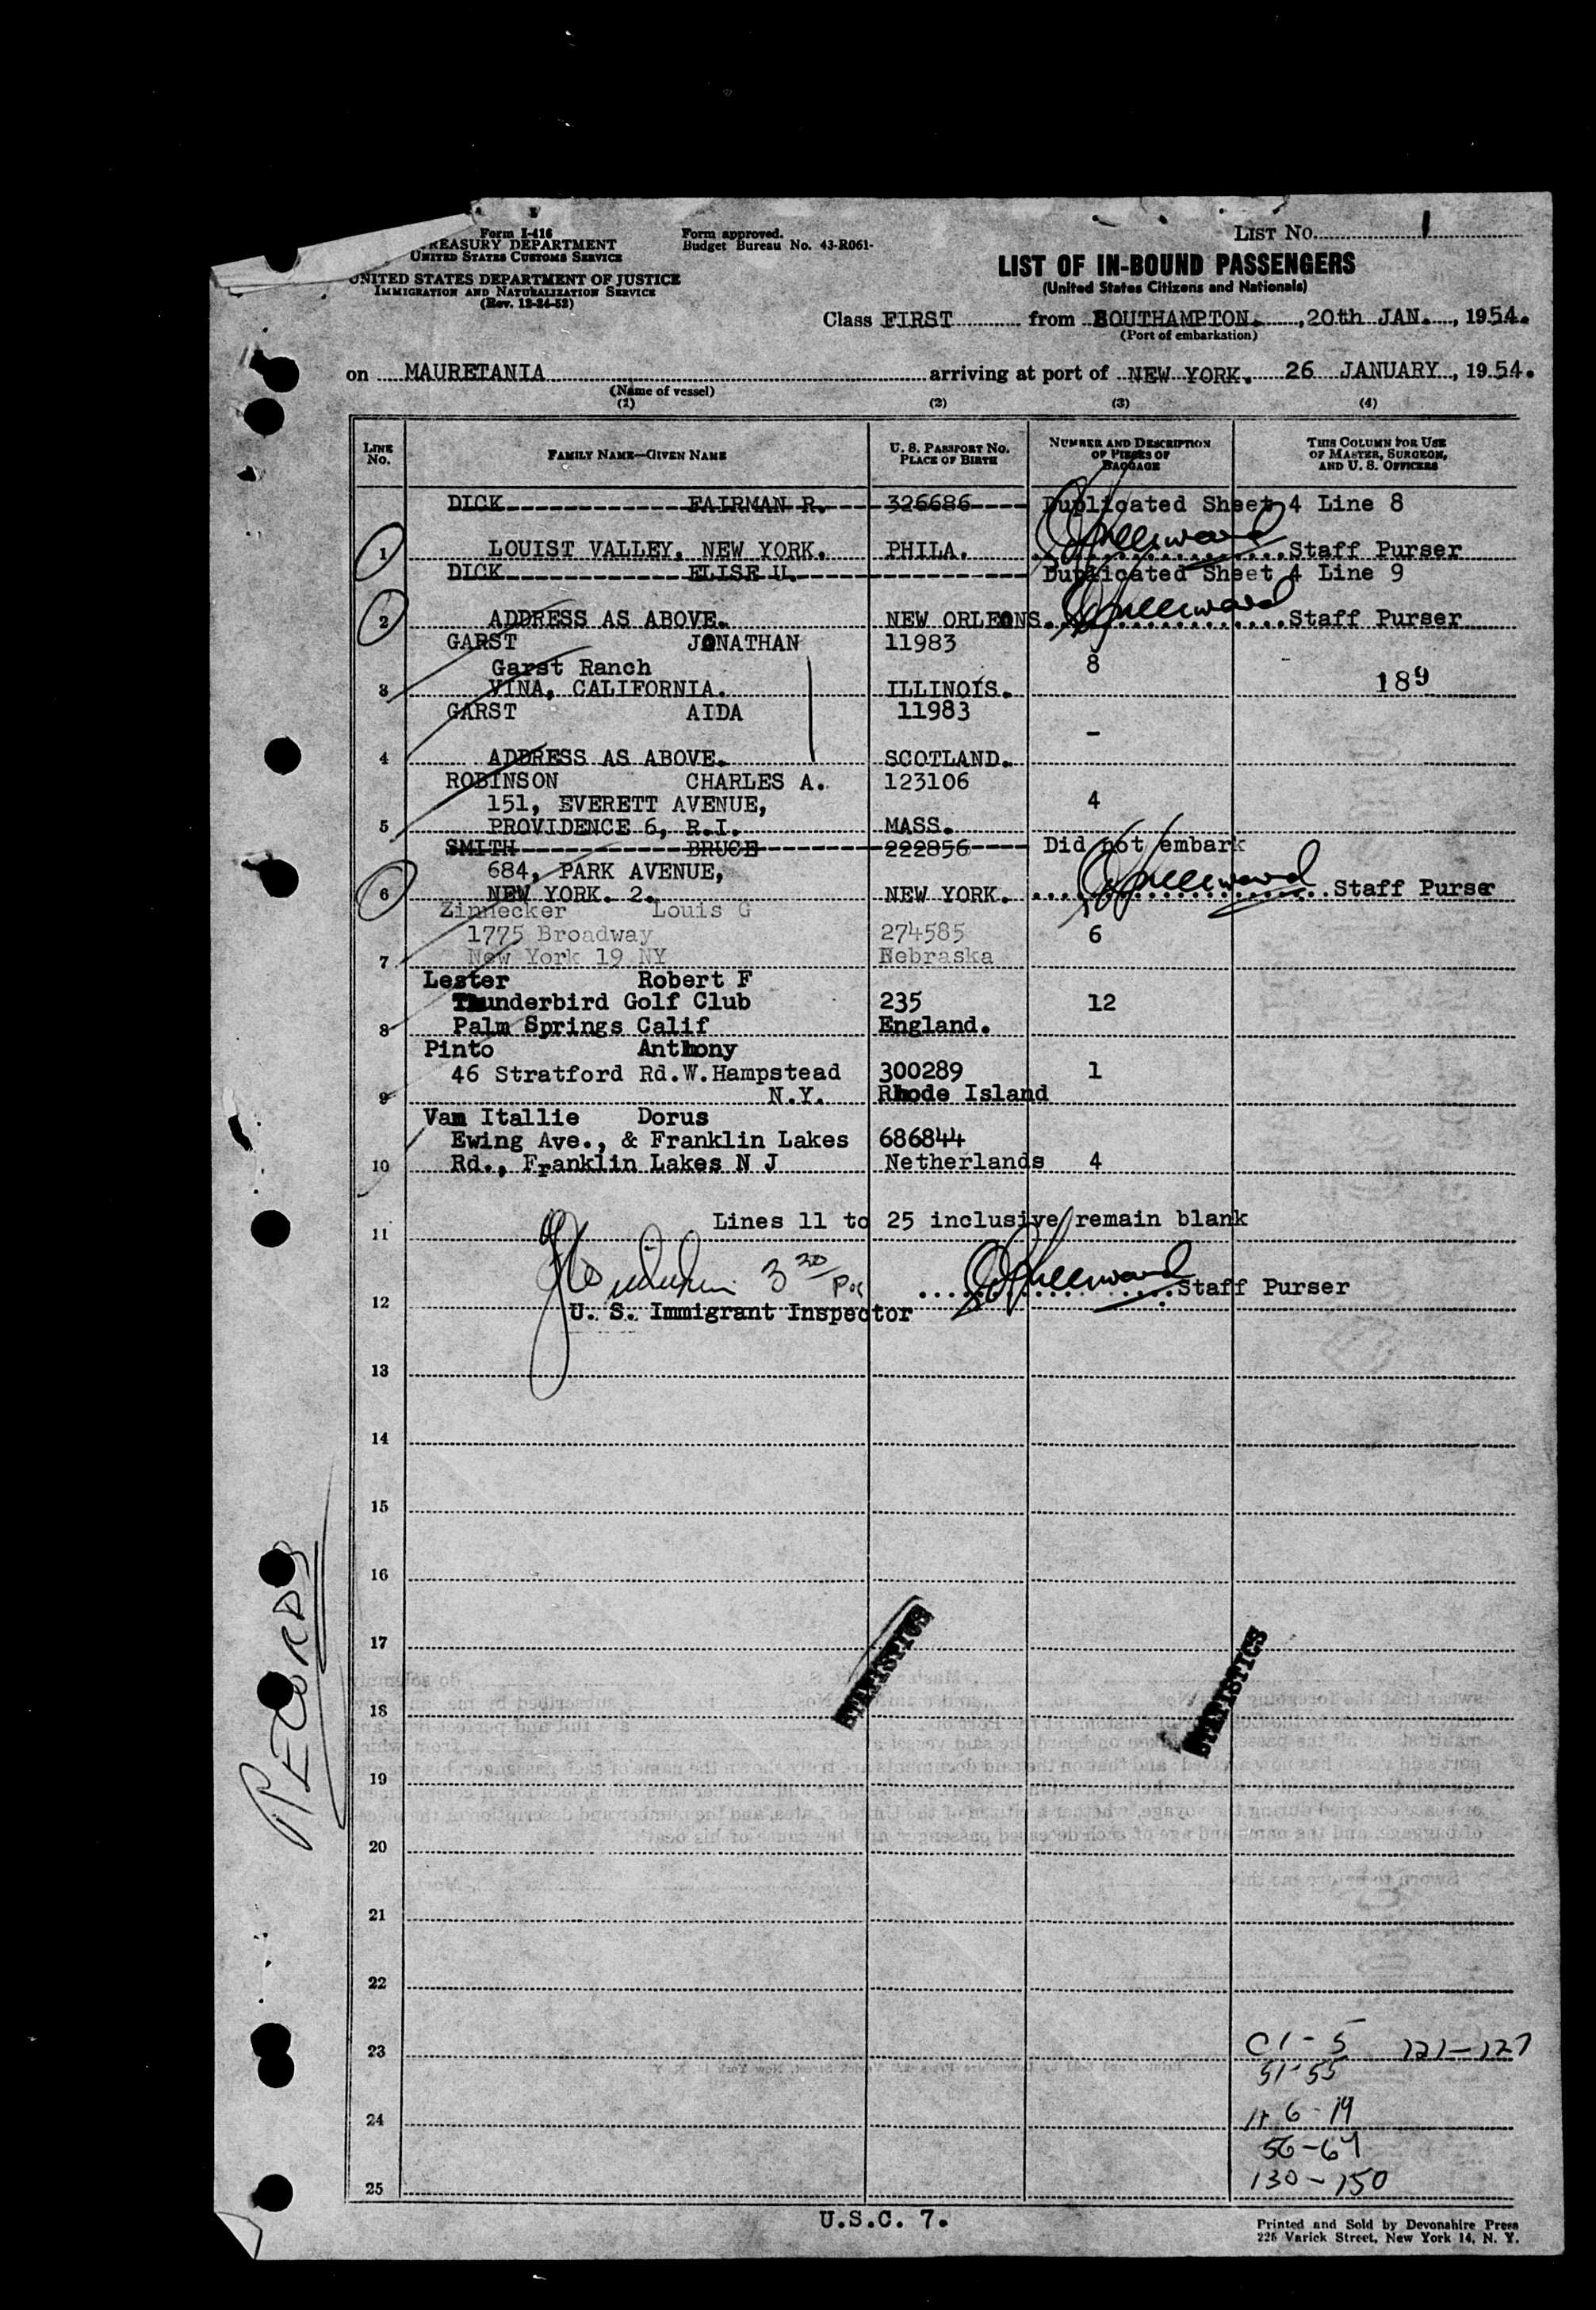 Form I-416
TREASURY DEPARTMENT
UNITED STATES CUSTOMS SERVICE
UNITED STATES DEPARTMENT OF JUSTICE
IMMIGRATION AND NATURALIZATION SERVICE
(Rev. 12-24-52)
Form approved.
Budget Bureau No. 43-R061-
LIST NO. 1
LIST OF IN-BOUND PASSENGERS
(United States Citizens and Nationals)
Class FIRST from SOUTHAMPTON. , 20th JAN. , 1954.
(Port of embarkation)
on MAURETANIA arriving at port of NEW YORK. 26 JANUARY , 1954.
(Name of vessel)
(1) (2) (3) (4)
LINE NO. FAMILY NAME—GIVEN NAME U. S. PASSPORT NO. PLACE OF BIRTH NUMBER AND DESCRIPTION OF PIECES OF BAGGAGE THIS COLUMN FOR USE OF MASTER, SURGEON, AND U. S. OFFICERS
DICK FAIRMAN R. 326686 Duplicated Sheet 4 Line 8
1 LOUIST VALLEY, NEW YORK. PHILA. Staff Purser
DICK ELISE U. Duplicated Sheet 4 Line 9
2 ADDRESS AS ABOVE. NEW ORLEONS. Staff Purser
GARST JONATHAN 11983
Garst Ranch 8
3 VINA, CALIFORNIA. ILLINOIS. 189
GARST AIDA 11983
-
4 ADDRESS AS ABOVE. SCOTLAND.
ROBINSON CHARLES A. 123106
151, EVERETT AVENUE, 4
5 PROVIDENCE 6, R.I. MASS.
SMITH BRUCE 222856 Did not embark
684, PARK AVENUE,
6 NEW YORK. 2. NEW YORK. Staff Purser
Zinnecker Louis G
1775 Broadway 274585 6
7 New York 19 NY Nebraska
Lester Robert F
Thunderbird Golf Club 235 12
8 Palm Springs Calif England.
Pinto Anthony
46 Stratford Rd.W.Hampstead 300289 1
9 N.Y. Rhode Island
Van Itallie Dorus
Ewing Ave., & Franklin Lakes 686844
10 Rd., Franklin Lakes N J Netherlands 4
Lines 11 to 25 inclusive remain blank
11
3 30
12 Staff Purser
U. S. Immigrant Inspector
13
14
15
16
RECORDS
17
STATISTICS STATISTICS
18
19
20
21
22
23 C1-5 121-127
51-55
24 6-19
56-64
130-150
25
U.S.C. 7.
Printed and Sold by Devonshire Press
225 Varick Street, New York 14, N. Y.